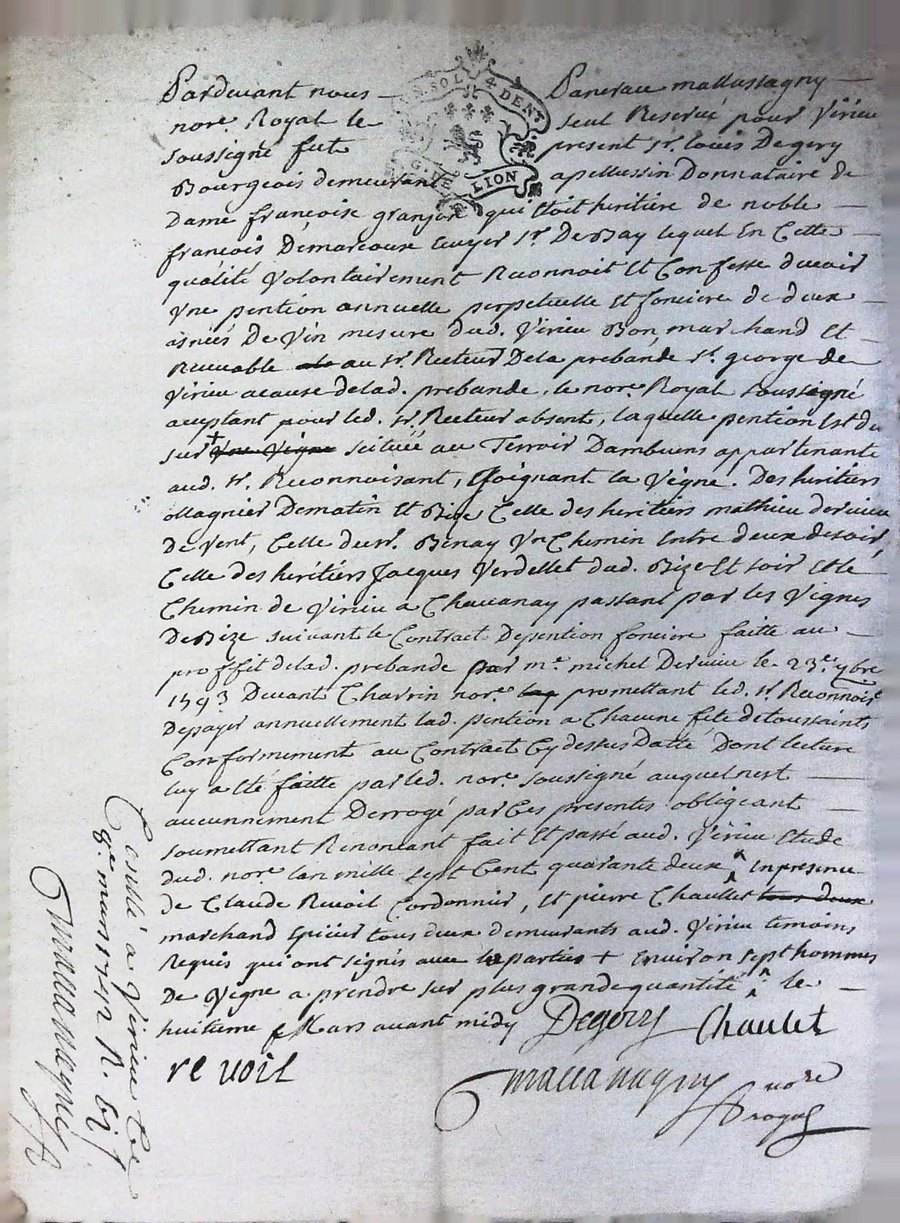 Pardevant nous Pancrace mallassagny
nore. Royal le seul Reservé pour Virieu
soussigné fut present sr. louis Degery
Bourgeois demeurant a pellussin Donnataire de
Dame françoise granjon qui Etoit heritiere de noble
françois Demarcoux Ecuyer sr. De Bay lequel En Cette
qualité Volontairement Reconnoit Et Confesse devoir
Vne pention annuelle perpetuelle Et fonciere de deux
asnées De Vin mesure dud. Virieu Bon, marchand Et
Recevable au sr. Recteur Dela prebande st. george de
Virieu acause delad. prebande, le nore. Royal soussigné
aceptant pour led. sr. Recteur absent, laquelle pention Est due
sur + Vne Vigne scituée au Terroir Dambuens appartenante
aud. sr. Reconnoisant, Joignant la Vigne. Des heritiers
ollagnier Dematin Et Bize Celle des heritiers mathieu dervieu
De Vent, Celle du sr. Benay Vn Chemin Entre deux de soir,
Celle des heritiers Jacques Verdellet dud. Bize Et soir Et le
Chemin de Virieu a Chavanay passant par les Vignes
De Bize suivant le Contract De pention fonciere faitte au
proffit delad. prebande par me. michel Dervieu le 23e. 9bre
1593 Devant Charrin nore. promettant led. sr. Reconnoist
De payer annuellement lad. pention a Chacune fete de toussaints
Conformement au Contract Cy dessus Datté Dont lecture
luy a Eté faitte par led. nore. soussigné auquel nest
aucunnement Derrogé par Ces presents obligeant
soumettant Renoncant fait Et passé aud. Virieu Etude
dud. nore. lan mille sept Cent quarante deux ^ En presence
de Claude Revoil Cordonnier, Et pierre Chaullet tous deux
marchand Epicier tous deux demeurants aud. Virieu temoins
Requis qui ont signés avec les parties + Environ sept hommes
De Vigne a prendre sur plus grande quantité ^ le
huitieme Mars avant midy Degery Chaulet
re voil
mallassagny nore
Royal
Conllé à Virieu Ce
8e. mars 1742 R.
mallassagny
SOL 4 DEN
G. DE LION